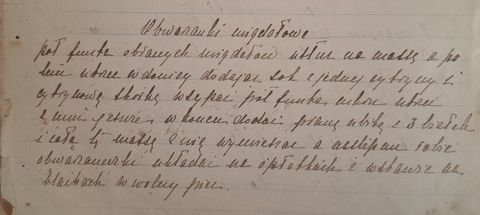 Obwarzanki migdałowe
pół funta obranych migdałów utłuc na massę a po
tem utrzec w donicy dodając sok z jednej cytryny i
cytrynową skórkę wsypać pół funta cukru utrzec
z nimi jeszcze, w końcu dodać pianę ubitą z 3 białek
i całą tę massę z nią wymieszać a następnie robić
obwarzaneczki układać na opłatkach i wstawić na
blachach w wolny piec.